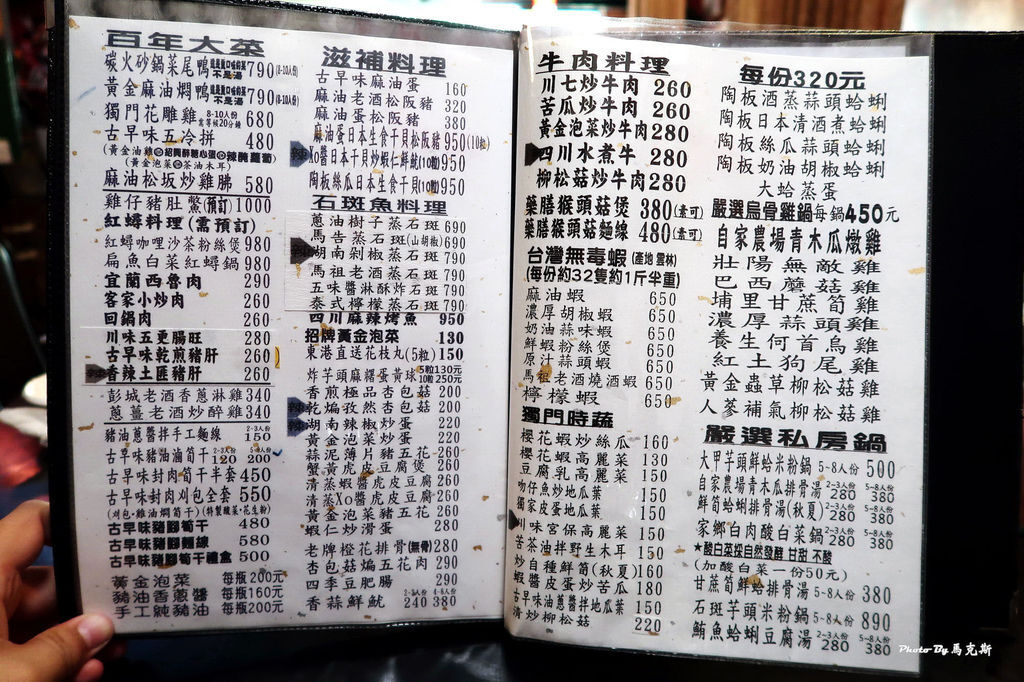 百年大菜
碳火砂鍋菜尾鴨 這是黃口味的菜 不是湯 790 (8-10人份)
黃金麻油燜鴨 這是黃口味的菜 不是湯 790 (8-10人份)
獨門花雕雞 8-10人份 需等候20分鐘 680
古早味五冷拼 480
(黃金油雞 紹興醉糖心蛋 辣腌薑蕭)
(黃金泡菜 茶油木耳)
麻油松坂炒雞胇 580
雞仔豬肚鱉(預訂)1000
紅蟳料理(需預訂)
紅蟳咖哩沙茶粉絲煲 980
扁魚白菜紅蟳鍋 980
宜蘭西魯肉 290
客家小炒肉 260
回鍋肉 260
川味五更腸旺 280
古早味乾煎豬肝 260
香辣土匪豬肝 260
彭城老酒香蔥淋雞 340
蔥薑老酒炒醉雞 340
豬油蔥醬拌手工麵線 2-3人份 150
古早味豬油滷筍干 2-3人份 120 5-8人份 200
古早味封肉筍干半套 450
古早味封肉刈包全套 550
(刈包·雞油燜筍干)(特製酸菜·花生粉)
古早味豬腳筍干 480
古早味豬腳麵線 580
古早味豬腳筍干禮盒 500
黃金泡菜 每瓶200元
豬油香蔥醬 每瓶160元
手工純豬油 每瓶200元
滋補料理
古早味麻油蛋 160
麻油老酒松阪豬 320
麻油蛋松阪豬 380
麻油蛋日本生食干貝松阪豬 950(10粒)
辣 Xo醬日本干貝炒蝦仁鮮魷(10顆) 950
陶板絲瓜日本生食干貝(10顆) 950
石斑魚料理
蔥油樹子蒸石斑 690
馬告蒸石斑(山胡椒) 690
湖南剁椒蒸石斑 790
馬祖老酒蒸石斑 790
五味醬淋酥炸石斑 790
泰式檸檬蒸石斑 790
四川麻辣烤魚 950
招牌黃金泡菜 130
東港直送花枝丸(5粒)150
炸芋頭麻糬蛋黃球 5粒130元 10粒250元
香煎極品杏包菇 200
辣 乾煸孜然杏包菇 200
辣 湖南辣椒炒蛋 220
黃金泡菜炒蛋 220
蒜泥薄片豬五花 260
蟹黃虎皮豆腐煲 260
清蒸蝦醬虎皮豆腐 260
清蒸Xo醬虎皮豆腐 260
黃金泡菜豬五花 260
蝦仁炒滑蛋 280
老牌橙花排骨(無骨)280
杏包菇煸五花肉 290
四季豆肥腸 290
香蒜鮮魷 2-3人份 240 4-6人份 380
牛肉料理
川七炒牛肉 260
苦瓜炒牛肉 260
黃金泡菜炒牛肉 280
四川水煮牛 280
柳松菇炒牛肉 280
藥膳猴頭菇煲 380(素可)
藥膳猴頭菇麵線 480(素可)
台灣無毒蝦(產地 雲林)
(每份約32隻約1斤半重)
麻油蝦 650
濃厚胡椒蝦 650
奶油蒜味蝦 650
鮮蝦粉絲煲 650
原汁蒜頭蝦 650
馬祖老酒燒酒蝦 650
檸檬蝦 650
獨門時蔬
櫻花蝦炒絲瓜 160
櫻花蝦高麗菜 130
豆腐乳高麗菜 150
吻仔魚炒地瓜葉 150
獨家皮蛋地瓜葉 150
川味宮保高麗菜 150
苦茶油拌野生木耳 150
炒自種鮮筍(秋夏)160
蝦醬皮蛋炒苦瓜 180
古早味油蔥醬拌地瓜葉 150
清炒柳松菇 220
每份320元
陶板酒蒸蒜頭蛤蜊
陶板日本清酒煮蛤蜊
陶板絲瓜蒜頭蛤蜊
陶板奶油胡椒蛤蜊
大蛤蒸蛋
嚴選烏骨雞鍋每鍋450元
自家農場青木瓜燉雞
壯陽無敵雞
巴西蘑菇雞
埔里甘蔗筍雞
濃厚蒜頭雞
養生何首烏雞
紅土狗尾雞
黃金蟲草柳松菇雞
人蔘補氣柳松菇雞
嚴選私房鍋
大甲芋頭鮮蛤米粉鍋 5-8人份 500
自家農場青木瓜排骨湯 2-3人份 280 5-8人份 380
鮮筍蛤蜊排骨湯(秋夏) 2-3人份 280 5-8人份 380
家鄉白肉酸白菜鍋 2-3人份 280 5-8人份 380
★酸白菜採自然發酵 甘甜 不酸
(加酸白菜一份50元)
甘蔗筍鮮蛤排骨湯 5-8人份 380
石斑芋頭米粉鍋 5-8人份 890
鮪魚蛤蜊豆腐湯 2-3人份 280 5-8人份 380
Photo By 馬克斯